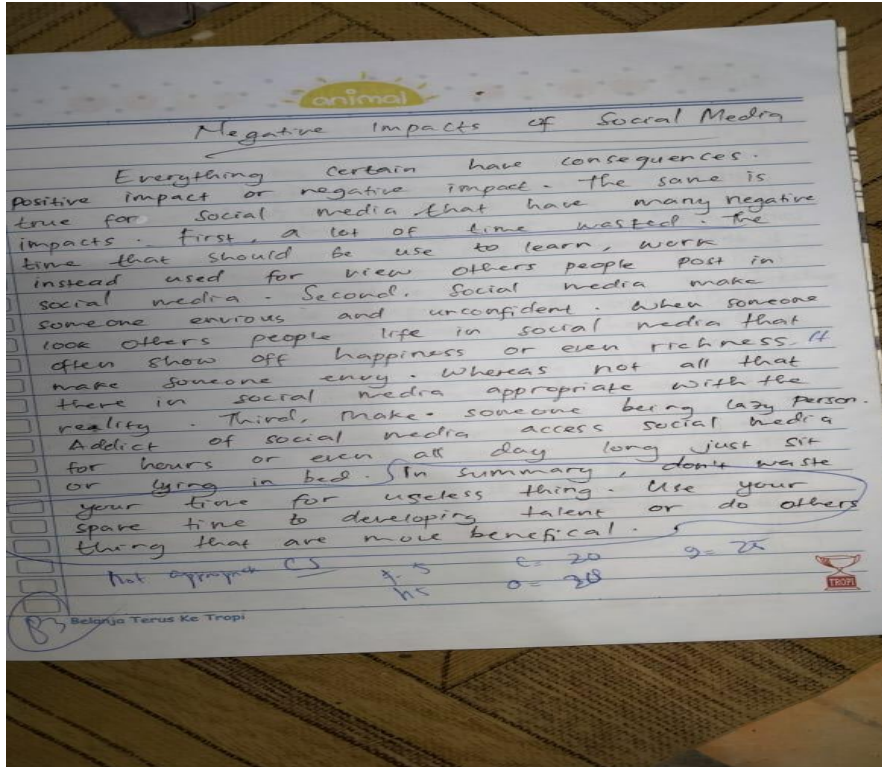 animal
Negative Impacts of Social Media
Everything certain have consequences.
positive impact or negative impact. The same is
true for social media that have many negative
impacts. First, a lot of time wasted. The
time that should be use to learn, work
instead used for view others people post in
social media. Second. Social media make
someone envious and unconfident. When someone
look others people life in social media that
often show off happiness or even richness. It
make someone envy. Whereas not all that
there in social media appropriate with the
reality. Third, make someone being lazy person.
Addict of social media access social media
for hours or even all day long just sit
or lying in bed. In summary, don't waste
your time for useless thing. Use your
spare time to developing talent or do others
thing that are more benefical.
Not CS
c= 20 g= 25
o=
TROPI
Belanja Terus Ke Tropi